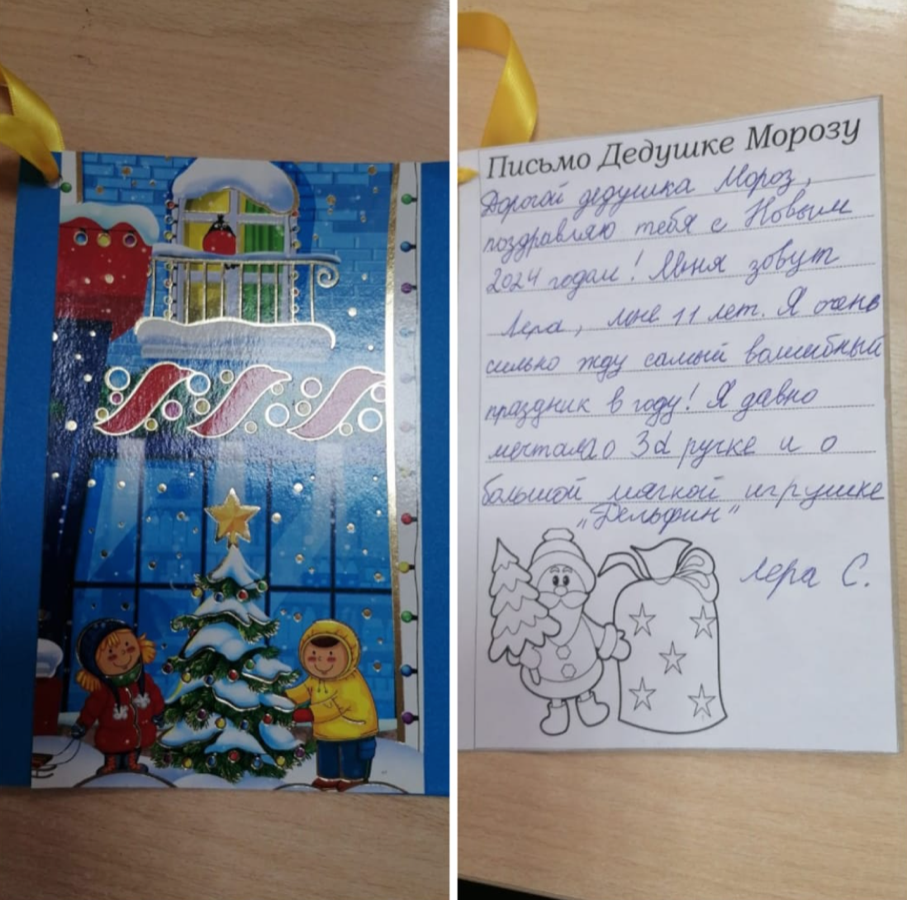 Письмо Дедушке Морозу
Дорогой дедушка Мороз,
поздравляю тебя с Новым
2024 годом! Меня зовут
Лера, мне 11 лет. Я очень
сильно жду самый волшебный
праздник в году! Я давно
мечтала о 3d ручке и о
большой мягкой игрушке
"Дельфин"
Лера С.